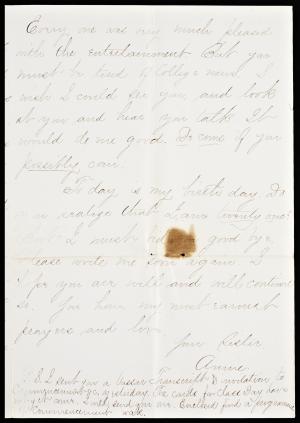 Every one was very much pleased
with the entertainment But you
must be tired of College news. I
wish I could see you, and look
at you and hear you talk It
would do me good. Do come if you
possibly can.
To day is my birth day. Do
you realize that I am twenty one?
But I must say good bye
Please write me soon again. I
hope you are well and will continue
so. You have my most earnest
prayers and love.
Your Sister
Annie
P.S. I sent you a Vassar Transcript & invitation to
Commencement &c. yesterday. The cards for Class Day have
not yet come. I will send you one. Enclosed find a programme
Commencement week.